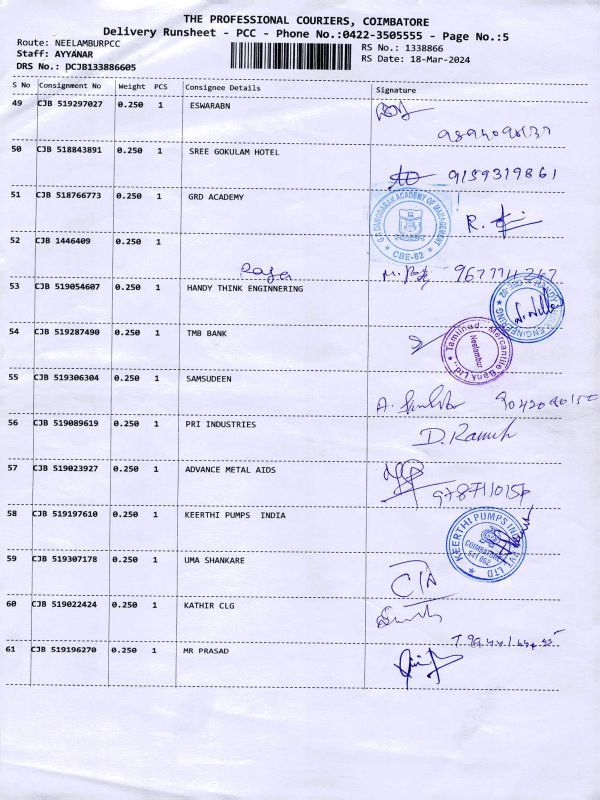 THE PROFESSIONAL COURIERS, COIMBATORE
Delivery Runsheet - PCC - Phone No.:0422-3505555 - Page No.:5
Route: NEELAMBURPCC
Staff: AYYANAR
DRS No.: DCJB133886605
RS No.: 1338866
RS Date: 18-Mar-2024
S No Consignment No Weight PCS Consignee Details Signature
49 CJB 519297027 0.250 1 ESWARABN
50 CJB 518843891 0.250 1 SREE GOKULAM HOTEL
9159319861
51 CJB 518766773 0.250 1 GRD ACADEMY
G.R. DAMODARAN ACADEMY OF MANAGEMENT
CBE-62
R.
52 CJB 1446409 0.250 1
Raja
53 CJB 519054607 0.250 1 HANDY THINK ENGINNERING
54 CJB 519287490 0.250 1 TMB BANK
Tamilnad Mercantile Bank Ltd.,
Neelambur
55 CJB 519306304 0.250 1 SAMSUDEEN
A.
56 CJB 519089619 0.250 1 PRI INDUSTRIES
D. Ramesh
57 CJB 519023927 0.250 1 ADVANCE METAL AIDS
58 CJB 519197610 0.250 1 KEERTHI PUMPS INDIA
KEERTHI PUMPS INDIA PVT LTD
COIMBATORE
641 062
59 CJB 519307178 0.250 1 UMA SHANKARE
60 CJB 519022424 0.250 1 KATHIR CLG
61 CJB 519196270 0.250 1 MR PRASAD